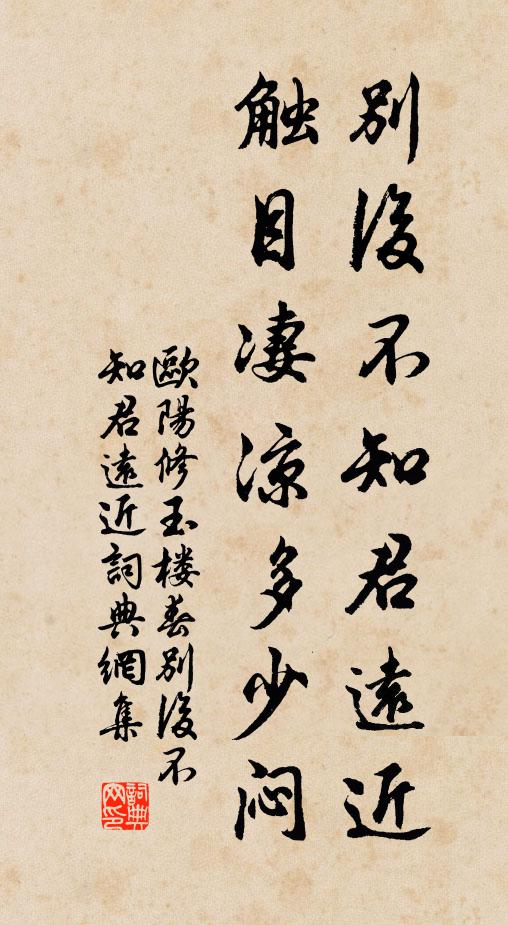 別後不知君遠近
触目凄涼多少闷
歐陽修玉楼春別後不
知君遠近詞典網集
詞典
网印